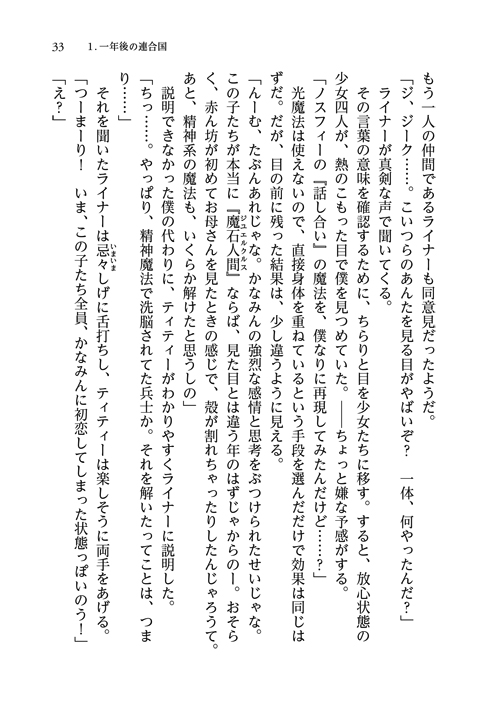 33　1. 一年後の連合国
もう一人の仲間であるライナーも同意見だったようだ。
「ジ、ジーク……。こいつらのあんたを見る目がやばいぞ？　一体、何やったんだ？」
ライナーが真剣な声で聞いてくる。
その言葉の意味を確認するために、ちらりと目を少女たちに移す。すると、放心状態の
少女四人が、熱のこもった目で僕を見つめていた。――ちょっと嫌な予感がする。
「ノスフィーの『話し合い』の魔法を、僕なりに再現してみたんだけど……？」
光魔法は使えないので、直接身体を重ねているという手段を選んだだけで効果は同じは
ずだ。だが、目の前に残った結果は、少し違うように見える。
「んーむ、たぶんあれじゃな。かなみんの強烈な感情と思考をぶつけられたせいじゃな。
この子たちが本当に『魔石人間』ならば、見た目とは違う年のはずじゃからのー。おそら
ジュエルクルス
く、赤ん坊が初めてお母さんを見たときの感じで、殻が割れちゃったりしたんじゃろうて。
あと、精神系の魔法も、いくらか解けたと思うしの」
説明できなかった僕の代わりに、ティティーがわかりやすくライナーに説明した。
「ちっ……。やっぱり、精神魔法で洗脳されてた兵士か。それを解いたってことは、つま
り……」
それを聞いたライナーは忌々しげに舌打ちし、ティティーは楽しそうに両手をあげる。
いまいま
「つーまーり！　いま、この子たち全員、かなみんに初恋してしまった状態っぽいのう！」
「え？」